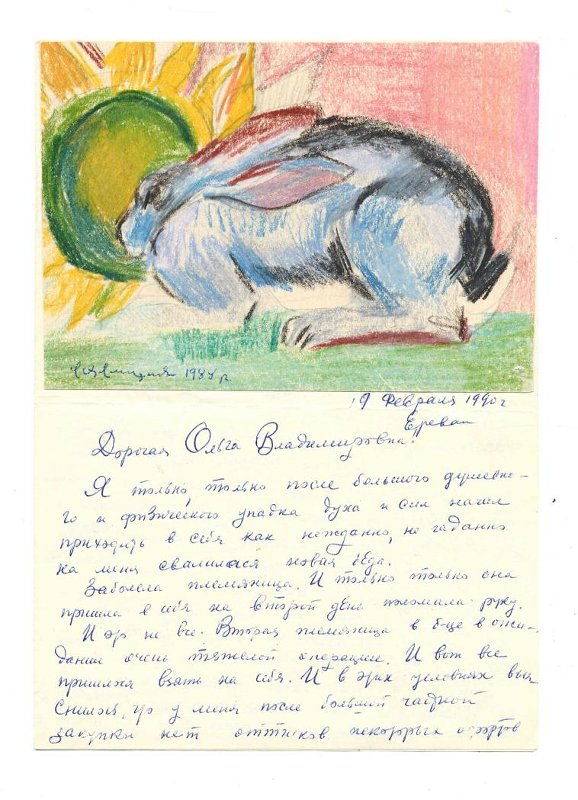 1988 г
19 Февраля 1990 г
Ереван
Дорогая Ольга Владимировна!
Я только, только после большого душевно-
го и физического упадка духа и сил начал
приходить в себя как нежданно, не гаданно
на меня свалилася новая беда.
Заболела племяница. И только только она
пришла в себя на второй день поломала руку.
И это не все. Вторая племяница в Баку в ожи-
дании очень тяжелой операции. И вот все
пришлося взять на себя. И в этих условиях выя
снилося, что у меня после большой частной
закупки нет оттисков некоторых офортов